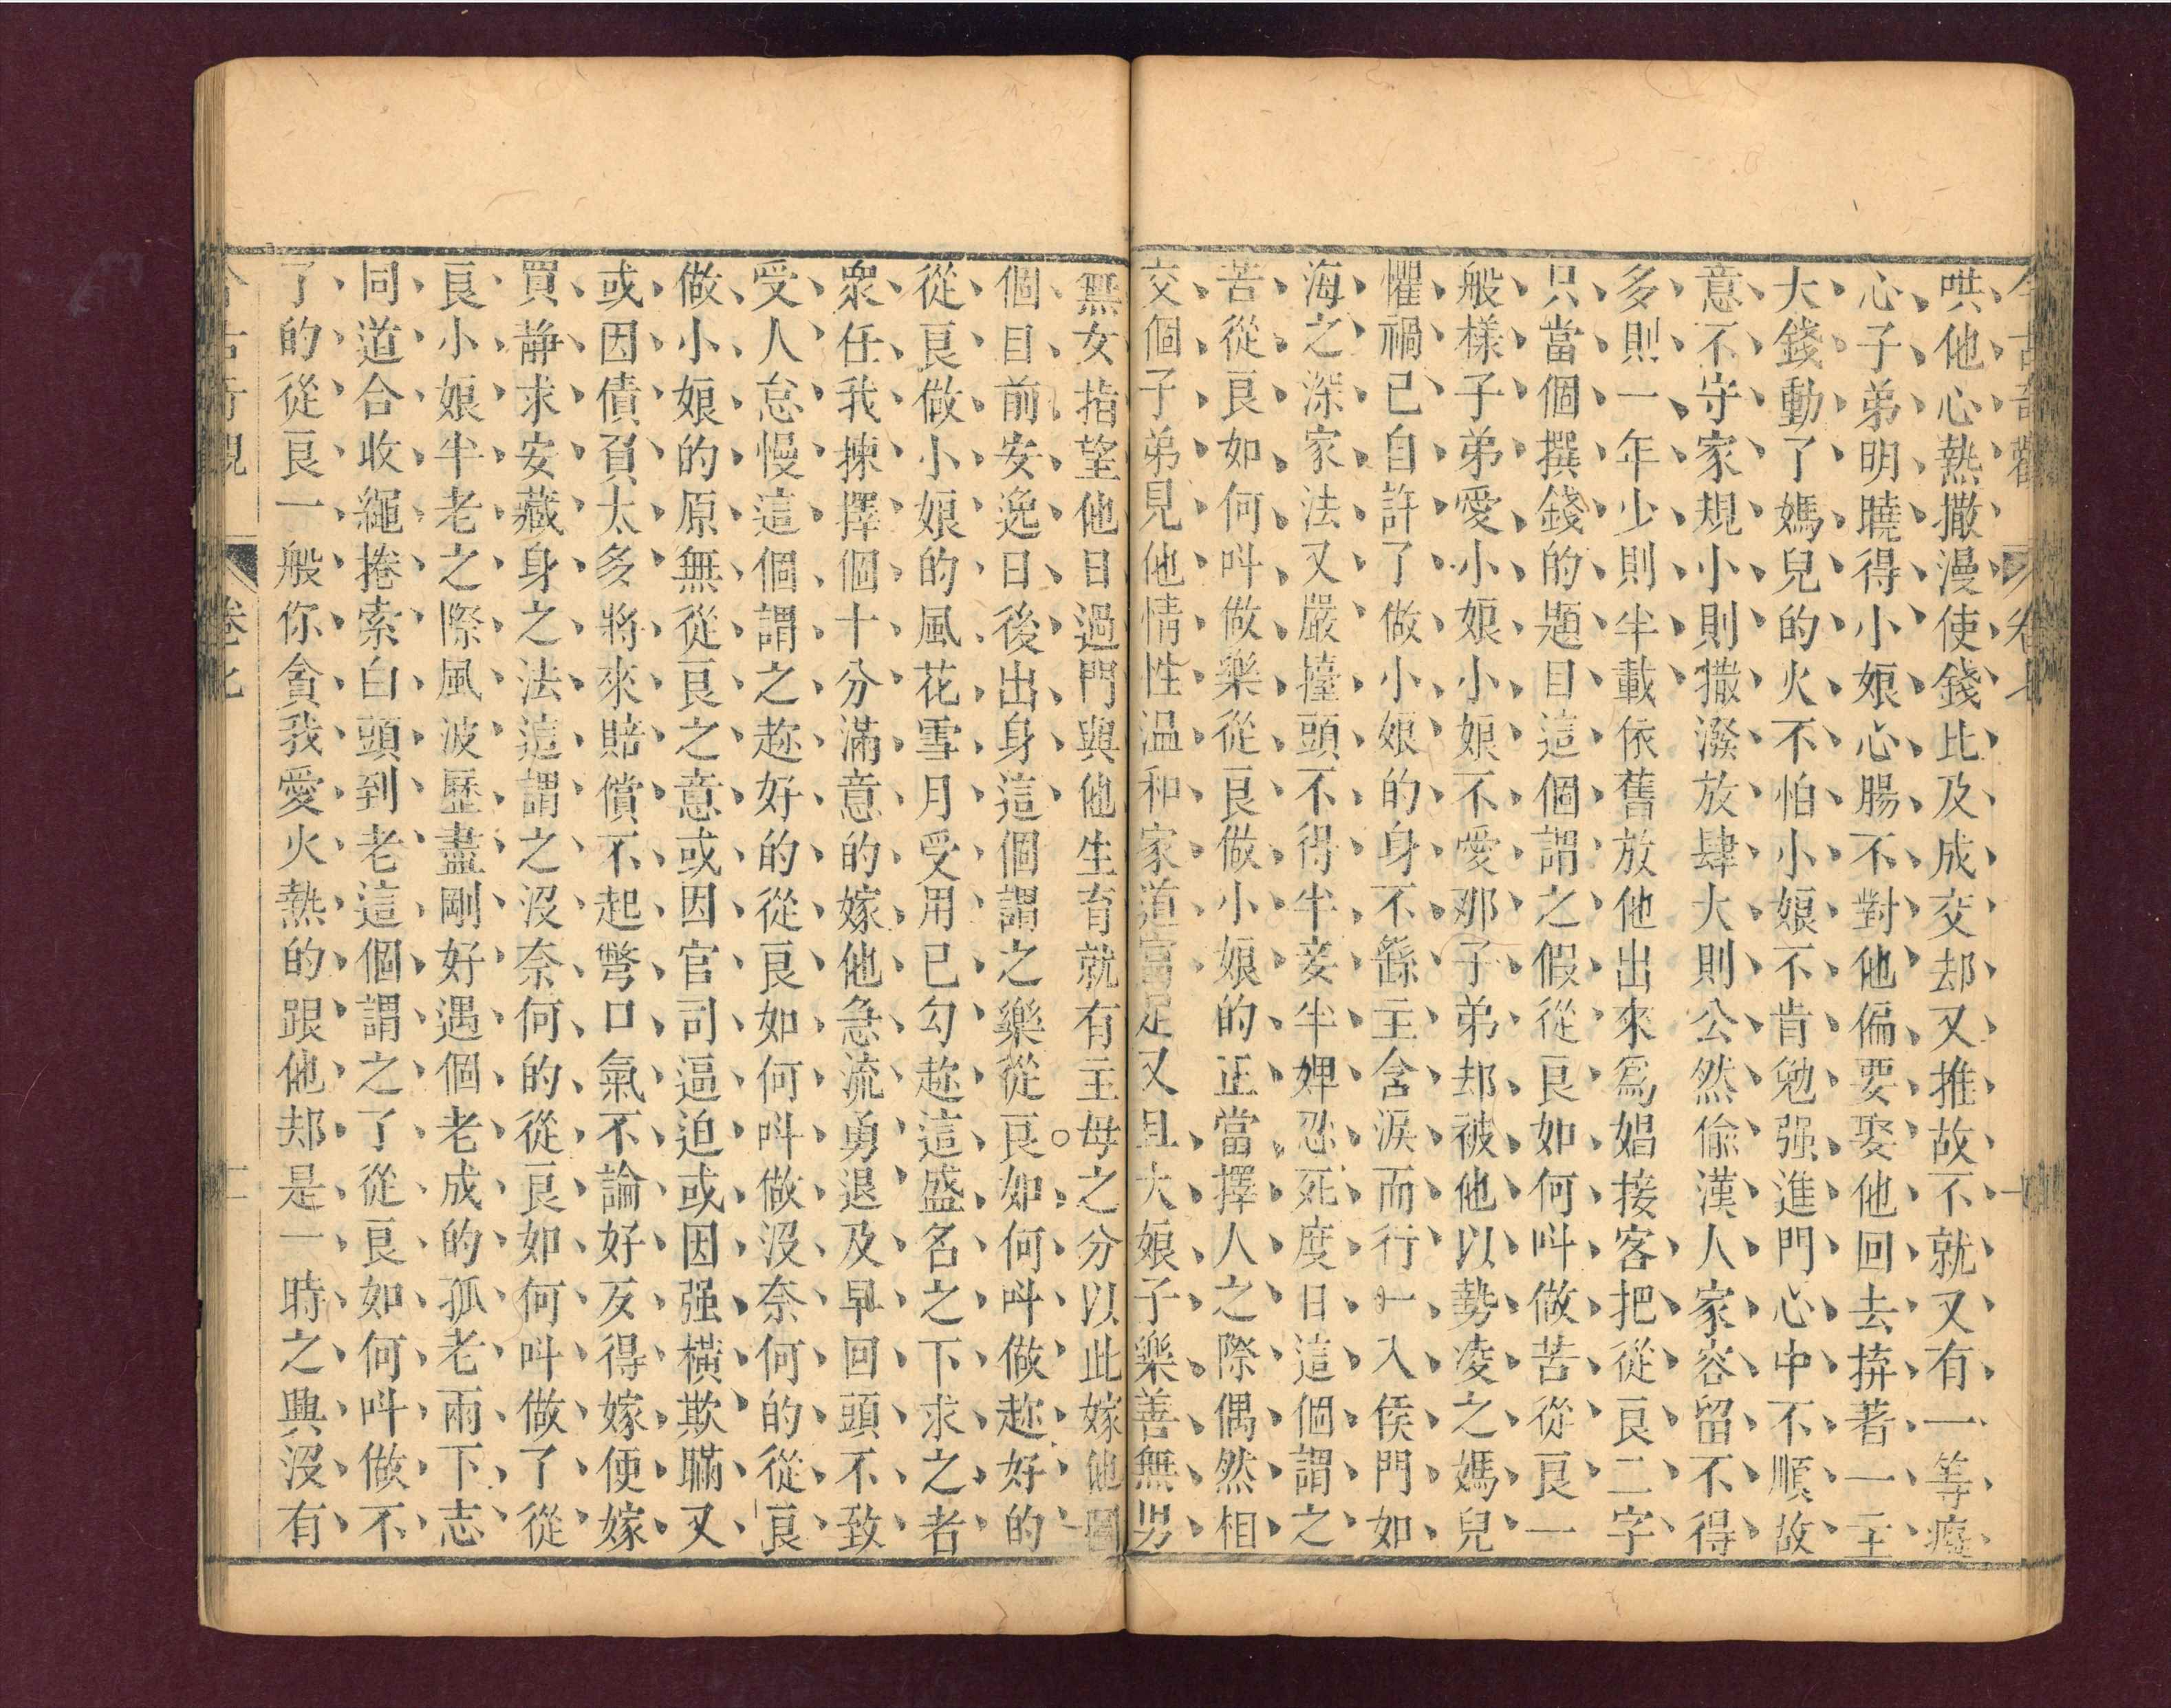 今古奇觀 卷七
哄他心熱撒漫使錢比及成交却又推故不就又有一等癡
心子弟明曉得小娘心腸不對他偏要娶他回去拚著一主
大錢動了媽兒的火不怕小娘不肯勉强進門心中不順故
意不守家規小則撒潑放肆大則公然偷漢人家容留不得
多則一年少則半載依舊放他出來爲娼接客把從良二字
只當個撰錢的題目這個謂之假從良如何叫做苦從良一
般樣子弟愛小娘小娘不愛那子弟却被他以勢凌之媽兒
懼禍已自許了做小娘的身不繇主含淚而行一入侯門如
海之深家法又嚴擡頭不得半妾半婢忍死度日這個謂之
苦從良如何叫做樂從良做小娘的正當擇人之際偶然相
交個子弟見他情性温和家道富足又且大娘子樂善無男
無女指望他日過門與他生育就有主母之分以此嫁他圖
個目前安逸日後出身這個謂之樂從良如何叫做趂好的
從良做小娘的風花雪月受用已勾趂這盛名之下求之者
衆任我揀擇個十分滿意的嫁他急流勇退及早回頭不致
受人怠慢這個謂之趂好的從良如何叫做没奈何的從良
做小娘的原無從良之意或因官司逼迫或因强横欺瞞又
或因債負太多將來賠償不起彆口氣不論好歹得嫁便嫁
買静求安藏身之法這謂之没奈何的從良如何叫做了從
良小娘半老之際風波歷盡剛好遇個老成的孤老兩下志
同道合收繩捲索白頭到老這個謂之了從良如何叫做不
了的從良一般你貪我愛火熱的跟他却是一時之興没有
今古奇觀 卷七